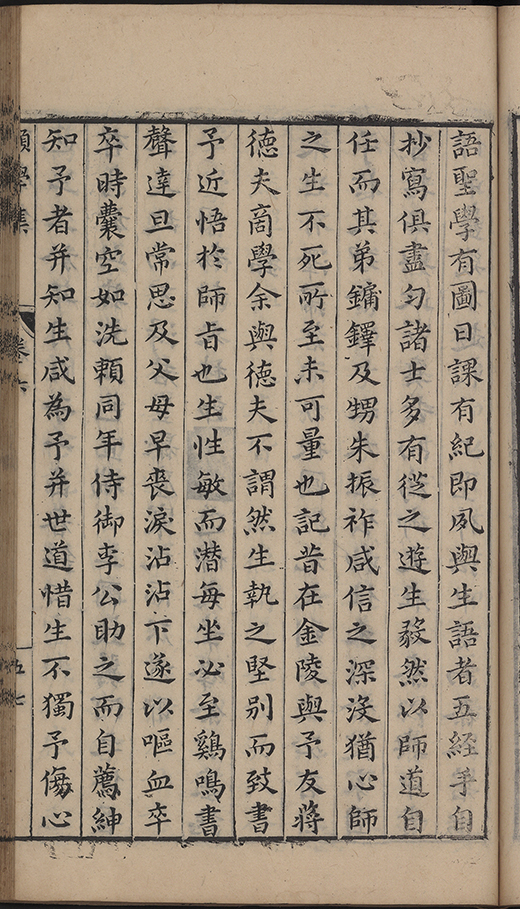 語聖學有圖日課有紀即夙與生語者五經手自
抄寫俱盡勻諸士多有從之遊生毅然以師道自
任而其弟鏞鐸及甥朱振祚咸信之深沒猶心師
之生不死所至未可量也記昔在金陵與予友蔣
德夫商學余與德夫不謂然生執之堅別而致書
予近悟於師旨也生性敏而潛每坐必至鷄鳴書
聲達旦常思及父母早喪淚沾沾下遂以嘔血卒
卒時囊空如洗賴同年侍御李公助之而自薦紳
知予者并知生咸為予并世道惜生不獨予傷心
學集
卷六
五七